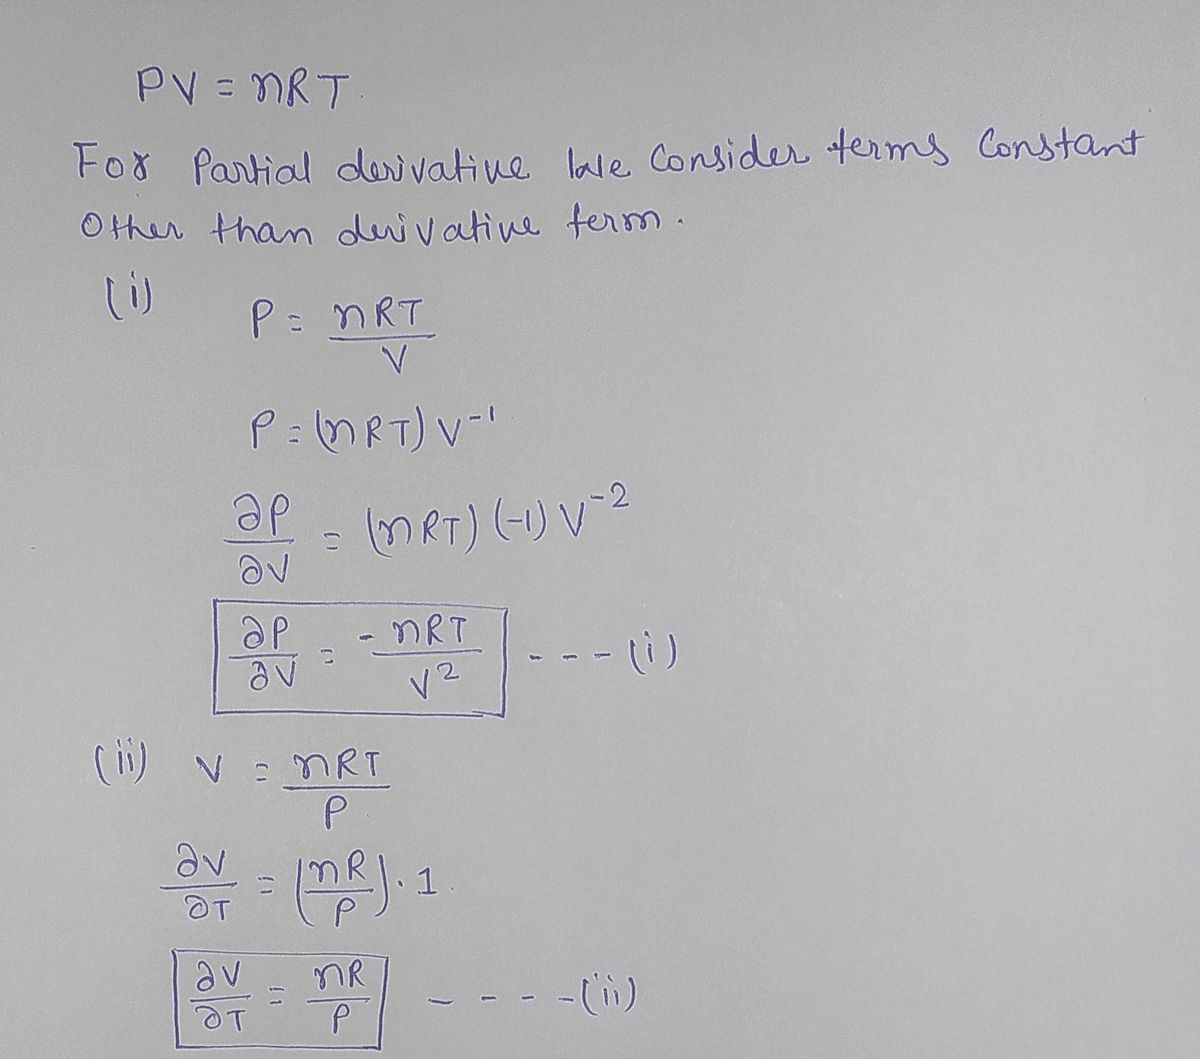 PV = nRT.
For Partial derivative we Consider terms Constant
Other than derivative term.
(i)
P = nRT/V
P = (nRT) V⁻¹
∂P/∂V = (nRT) (-1) V⁻²
∂P/∂V = -nRT/V² - - - - (i)
(ii) V = nRT/P
∂V/∂T = (nR/P) · 1.
∂V/∂T = nR/P - - - - (ii)